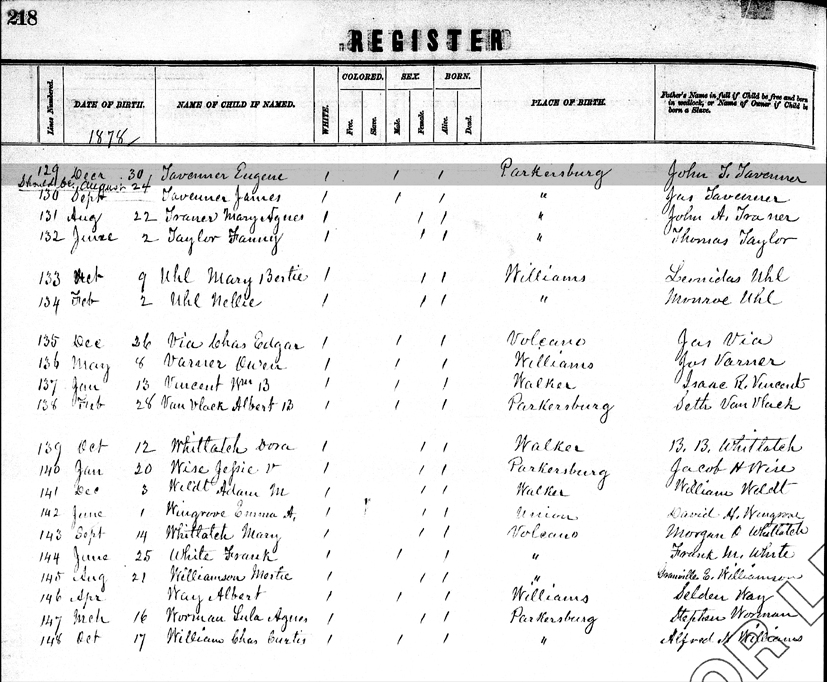 218
REGISTER
Lines Numbered. DATE OF BIRTH. NAME OF CHILD IF NAMED. WHITE. COLORED. Free. Slave. SEX. Male. Female. BORN. Alive. Dead. PLACE OF BIRTH. Father's Name in full if Child be free and born in wedlock, or Name of Owner if Child be born a Slave.
1878
129 Decr 30 Tavenner Eugene 1 1 1 Parkersburg John T. Tavenner
Should be August 24
130 Sept Tavenner James 1 1 1 " Jas Tavenner
131 Aug 22 Traner Mary Agnes 1 1 1 " John A. Traner
132 June 2 Taylor Fanny 1 1 1 " Thomas Taylor
133 Oct 9 Uhl Mary Bertie 1 1 1 Williams Leonidas Uhl
134 Feb 2 Uhl Nellie 1 1 1 " Monroe Uhl
135 Dec 26 Via Chas Edgar 1 1 1 Volcano Jas Via
136 May 8 Varner Owen 1 1 1 Williams Jos Varner
137 Jan 13 Vincent Wm B 1 1 1 Walker Isaac R. Vincent
138 Feb 28 Van Vlack Albert B 1 1 1 Parkersburg Seth Van Vlack
139 Oct 12 Whittatch Dora 1 1 1 Walker B. B. Whittatch
140 Jan 20 Wise Jessie V 1 1 1 Parkersburg Jacob H Wise
141 Dec 3 Wildt Adam M 1 1 1 Walker William Wildt
142 June 1 Wingrove Emma A. 1 1 1 Union David H. Wingrove
143 Sept 14 Whittatch Mary 1 1 1 Volcano Morgan D Whittatch
144 June 25 White Frank 1 1 1 " Frank M. White
145 Aug 21 Williamson Mertie 1 1 1 " Granville E. Williamson
146 Apr Way Albert 1 1 1 Williams Selden Way
147 Mch 16 Worman Lula Agnes 1 1 1 Parkersburg Stephen Worman
148 Oct 17 William Chas Curtis 1 1 1 " Alfred N Williams
OR L